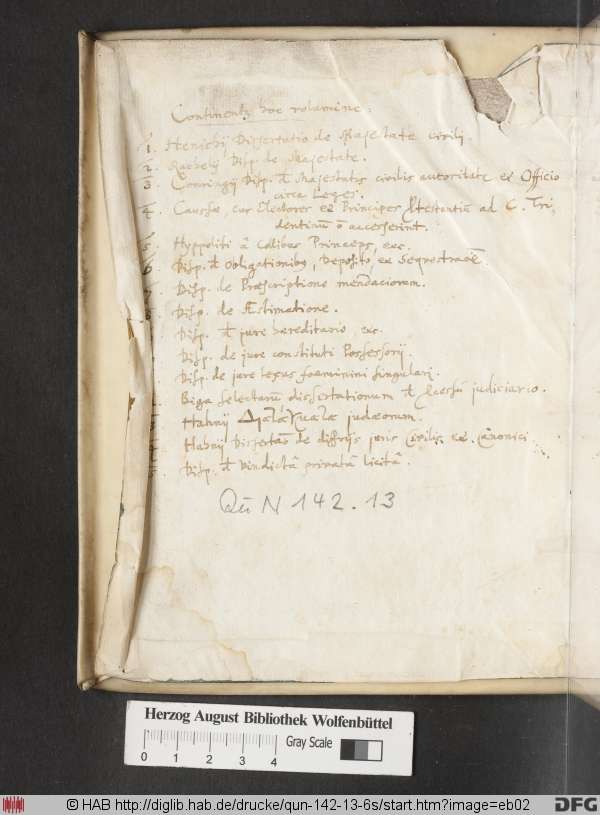 Continentur hoc volumine:
1. Henichij Dissertatio de Majestate civili.
2. Rachelij Disp. de Majestate.
3. Conringij Disp. d Majestatis civilis autoritate et Officio
circa Leges.
4. Caussæ, cur Electores et Principes Protestantiu ad C. Tri,
dentinum accesserint.
5. Hyppoliti à Collibus Princeps, etc.
6. Disp. d Obligationibus, Deposito, et Sequestratoe.
7. Disp. de Præscriptione mendaciorum.
8. Disp. de Æstimatione.
Disp. d jure hereditario etc.
Disp. de jure constituti Possessorij.
Disp. de jure sexus foeminini singulari.
Biga selectaru dissertationum d judiciario.
Hahnij judæorum.
Hahnij Dissertao de differijs juris Civilis et Canonici
Disp. d Vindicta privata licita.
Qu N 142.13
Herzog August Bibliothek Wolfenbüttel
0 1 2 3 4 Gray Scale
© HAB http://diglib.hab.de/drucke/qun-142-13-6s/start.htm?image=eb02
DFG